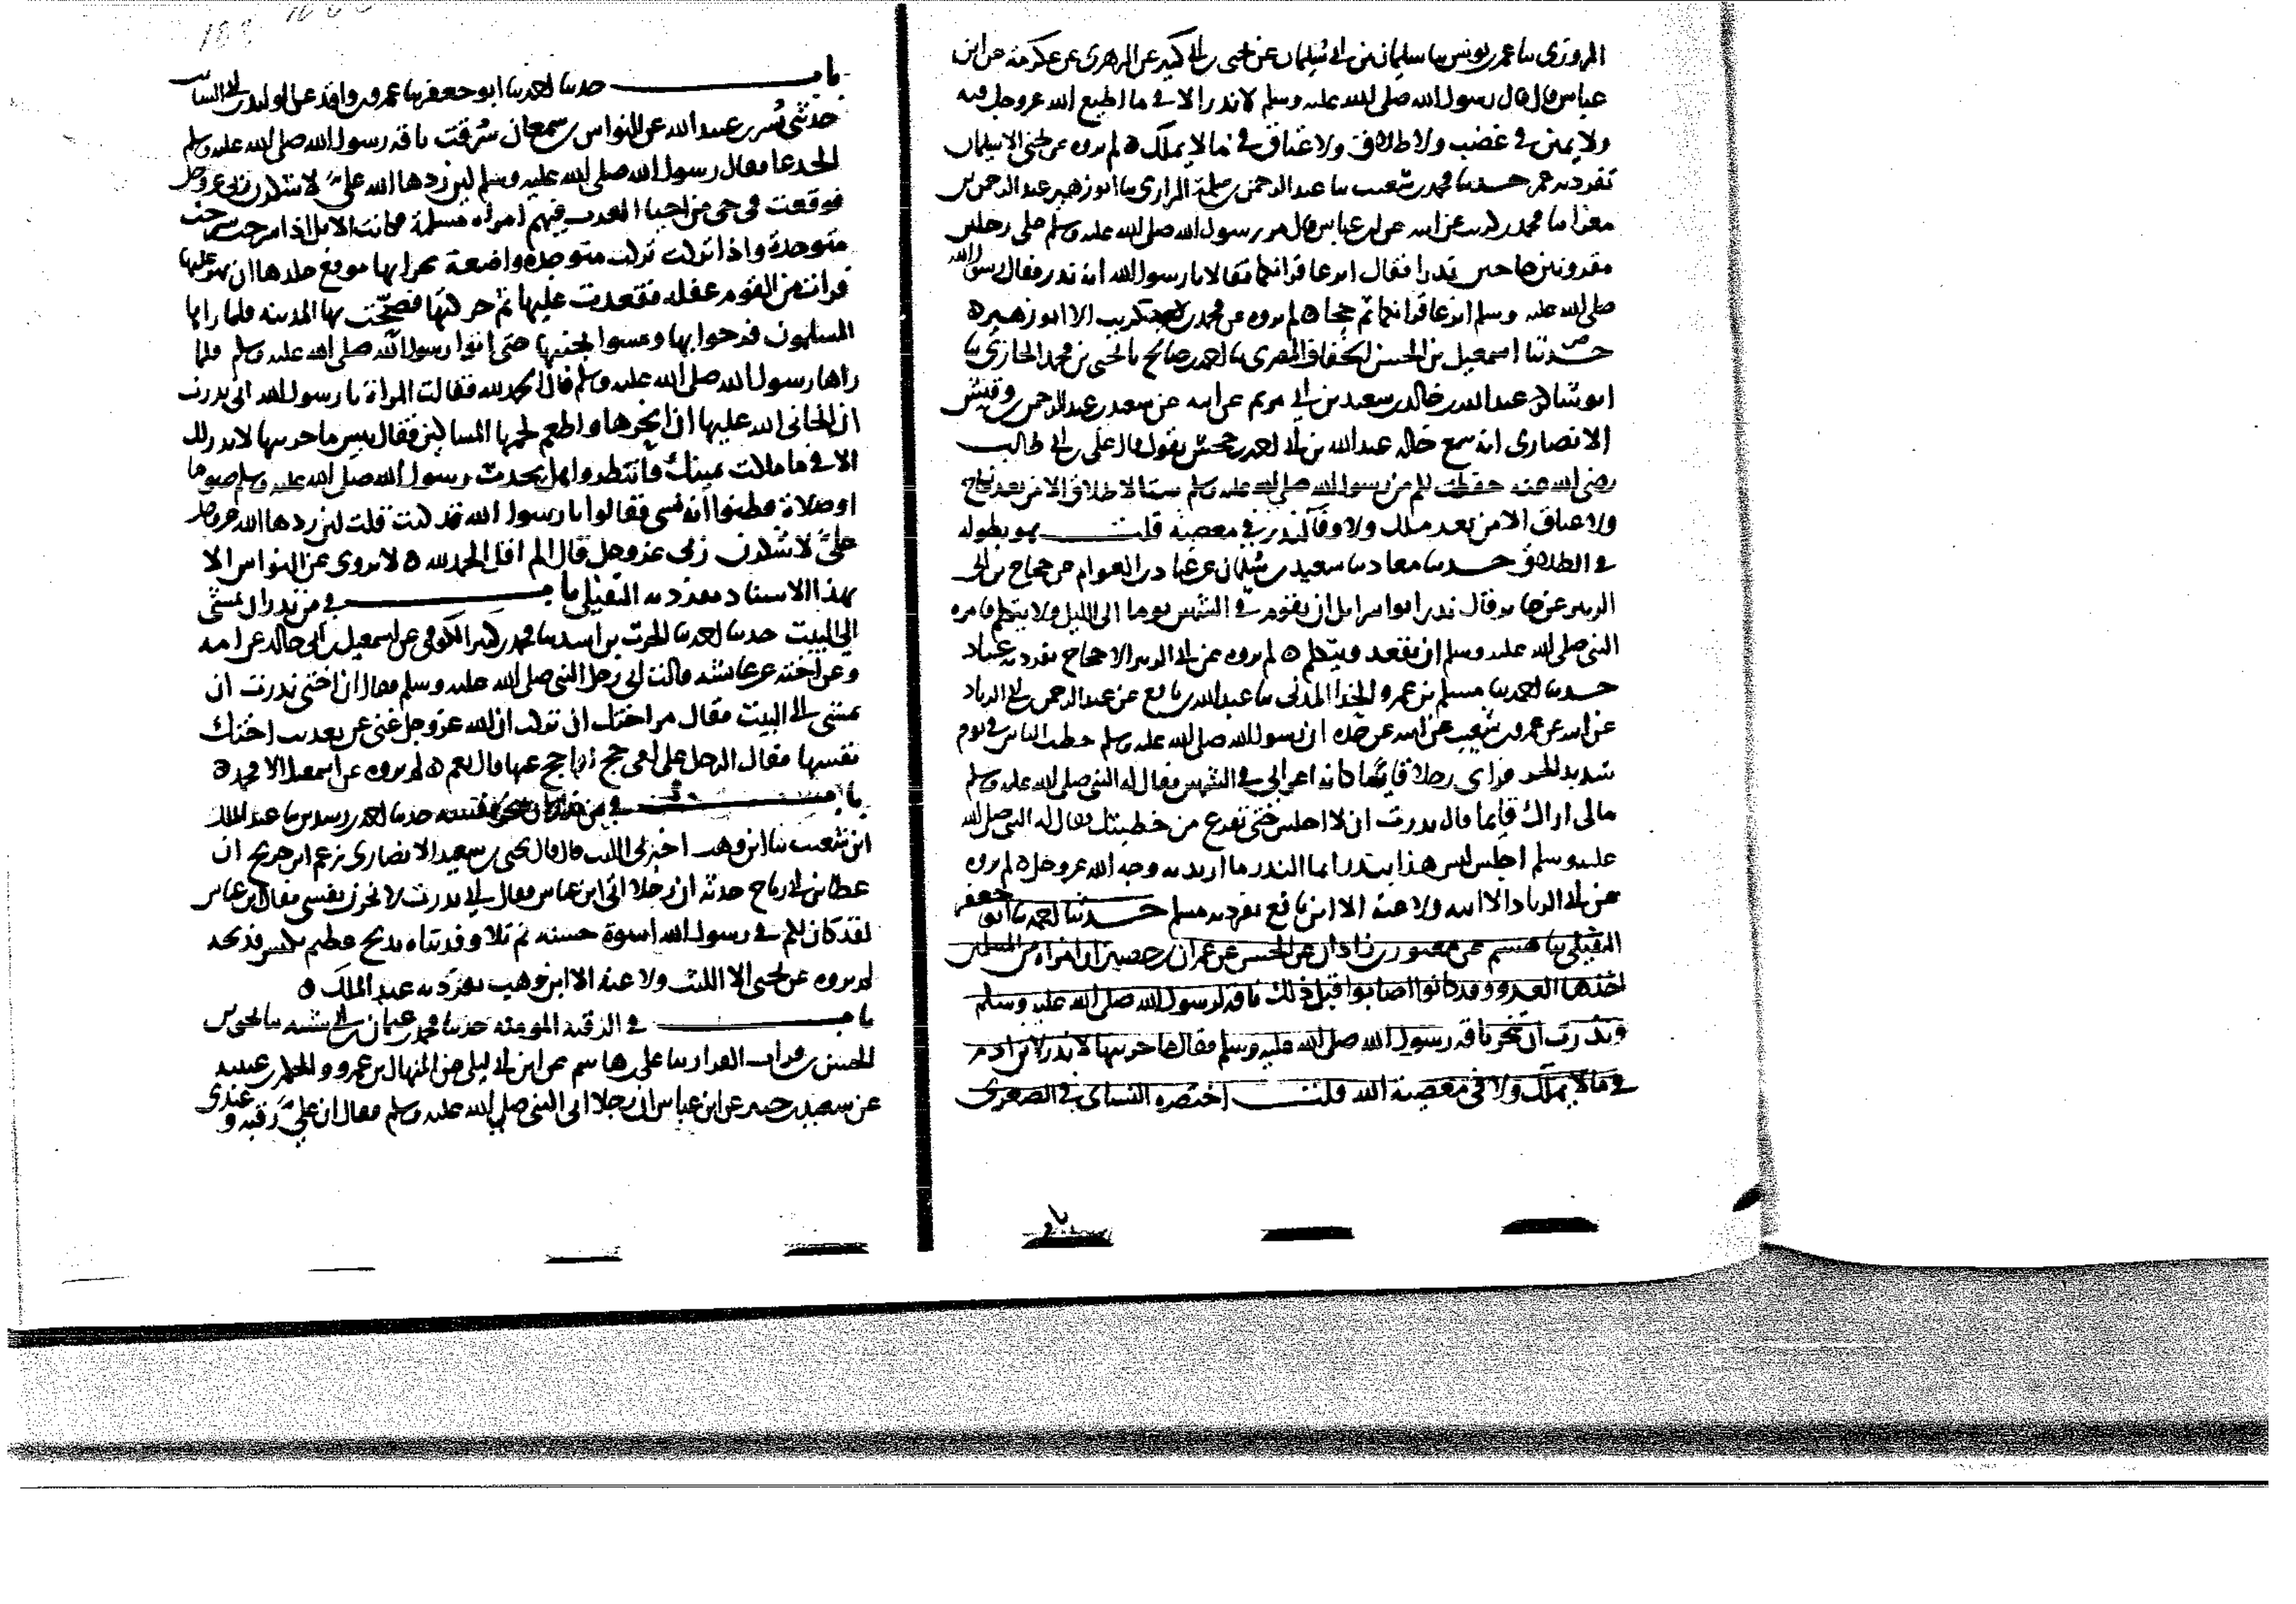 المروزى نا عمر بن يونس نا سليمان بن ابى سليمان عن يحيى بن ابى كثير عن الزهرى عن عكرمة عن ابن
عباس قال قال رسول الله صلى الله عليه وسلم لا نذر الا فى ما اطيع الله عز وجل فيه
ولا يمين فى غضب ولا طلاق ولا عتاق فى ما لا يملك ه لم يروه عن يحيى الا سليمان
تفرد به عمر حدثنا محمد بن شعيب نا عبد الرحمن بن سلمة الرازى نا ابو زهير عبد الرحمن بن
مغرا نا محمد بن كريب عن ابيه عن ابن عباس قال مر رسول الله صلى الله عليه وسلم على رجلين
مقرونين حاجين نذرا فقال انزعا قرانكما فقالا يا رسول الله انه نذر فقال رسول الله
صلى الله عليه وسلم انزعا قرانكما ثم حجا ه لم يروه عن محمد بن كريب الا ابو زهير ه
حدثنا اسمعيل بن الحسن الخفاف المصرى نا احمد بن صالح نا يحيى بن محمد الجارى نا
ابو شاكر عبد الله بن خالد بن سعيد بن ابى مريم عن ابيه عن سعيد بن عبد الرحمن بن وقيش
الانصارى انه سمع خاله عبد الله بن ابى احمد بن جحش يقول قال على بن ابى طالب
رضى الله عنه حفظت لكم من رسول الله صلى الله عليه وسلم ستا لا طلاق الا من بعد نكاح
ولا عتاق الا من بعد ملك ولا وفاء لنذر فى معصية قلت هو بطوله
فى الطلاق حدثنا معاذ نا سعيد بن سليمان عن عباد بن العوام عن حجاج عن ابى
الزبير عن جابر قال نذر ابو اسرايل ان يقوم فى الشمس يوما الى الليل ولا يتكلم فامره
النبى صلى الله عليه وسلم ان يقعد ويتكلم ه لم يروه عن ابى الزبير الا حجاج تفرد به عباد
حدثنا احمد نا مسلم بن عمرو الحذا المدنى نا عبد الله بن نافع عن عبد الرحمن بن ابى الزناد
عن ابيه عن عمرو بن شعيب عن ابيه عن جده ان رسول الله صلى الله عليه وسلم خطب الناس فى يوم
شديد الحر فراى رجلا قايما كانه اعرابى فى الشمس فقال له النبى صلى الله عليه وسلم
مالى اراك قايما قال نذرت ان لا اجلس حتى تفرغ من خطبتك فقال له النبى صلى الله
عليه وسلم اجلس ليس هذا بنذر انما النذر ما اريد به وجه الله عز وجل ه لم يروه
عن ابى الزناد الا ابنه ولا عنه الا ابن نافع تفرد به مسلم حدثنا احمد نا ابو جعفر
النفيلى نا هشيم عن منصور بن زاذان عن الحسن عن عمران بن حصين ان امراة من المسلمين
اخذها العدو وقد كانوا اصابوا قبل ذلك ناقة لرسول الله صلى الله عليه وسلم
ونذرت ان تنحر ناقة رسول الله صلى الله عليه وسلم فقال بيس ما جزيتها لا نذر لابن ادم
فى ما لا يملك ولا فى معصية الله قلت اختصره النساى فى الصغرى
باب حدثنا احمد نا ابو جعفر نا عمرو بن واقد عن الوليد بن ابى السايب
حدثنى بسر بن عبيد الله عن النواس بن سمعان سرقت ناقة رسول الله صلى الله عليه وسلم
الجدعا فقال رسول الله صلى الله عليه وسلم لين ردها الله على لاشكرن ربى عز وجل
فوقعت فى حى من احيا العرب فيهم امراة مسلمة فكانت الابل اذا سرحت سرحت
متوحدة واذا تركت تركت متوحدة واضعة بجرانها
فرات من القوم غفلة فقعدت عليها ثم حركتها فصبحت بها المدينة فلما راها
المسلمون فرحوا بها ومشوا بجنبها حتى اتوا رسول الله صلى الله عليه وسلم فلما
راها رسول الله صلى الله عليه وسلم قال الحمد لله فقالت المراة يا رسول الله انى نذرت
ان انجانى الله عليها ان انحرها واطعم لحمها المساكين فقال بيس ما جزيتها لا نذر لك
الا فى ما ملكت يمينك فانتظروا هل يحدث رسول الله صلى الله عليه وسلم صوما
او صلاة فظنوا انه نسى فقالوا يا رسول الله قد كنت قلت لين ردها الله عز وجل
على لاشكرن ربى عز وجل قال الم اقل الحمد لله ه لا يروى عن النواس الا
بهذا الاسناد تفرد به النفيلى باب فى من نذر ان يمشى
الى البيت حدثنا احمد نا الحرث بن اسد نا محمد بن كثير الكوفى عن اسمعيل بن ابى خالد عن امه
وعن اخته عن عايشة قالت اتى رجل النبى صلى الله عليه وسلم فقال ان اختى نذرت ان
تمشى الى البيت فقال مر اختك ان تركب ان الله عز وجل غنى عن تعذيب اختك
نفسها فقال الرجل على امى حج افاحج عنها قال نعم ه لم يروه عن اسمعيل الا محمد ه
باب فى من نذر ان ينحر نفسه حدثنا احمد بن رشدين نا عبد الملك
ابن شعيب نا ابن وهب اخبرنى الليث قال قال يحيى بن سعيد الانصارى زعم ابن جريج ان
عطا بن ابى رباح حدثه ان رجلا اتى ابن عباس فقال انى نذرت لانحرن نفسى فقال ابن عباس
لقد كان لكم فى رسول الله اسوة حسنة ثم تلا وفديناه بذبح عظيم بكبش فذبحه
لم يروه عن يحيى الا الليث ولا عنه الا ابن وهب تفرد به عبد الملك ه
باب فى الرقبة المومنة حدثنا محمد بن عثمان بن ابى شيبة نا
الحسن بن فرات القزاز نا على بن هاشم عن ابن ابى ليلى عن المنهال بن عمرو والحكم بن عتيبة
عن سعيد بن جبير عن ابن عباس ان رجلا اتى النبى صلى الله عليه وسلم فقال ان على رقبة وعندى